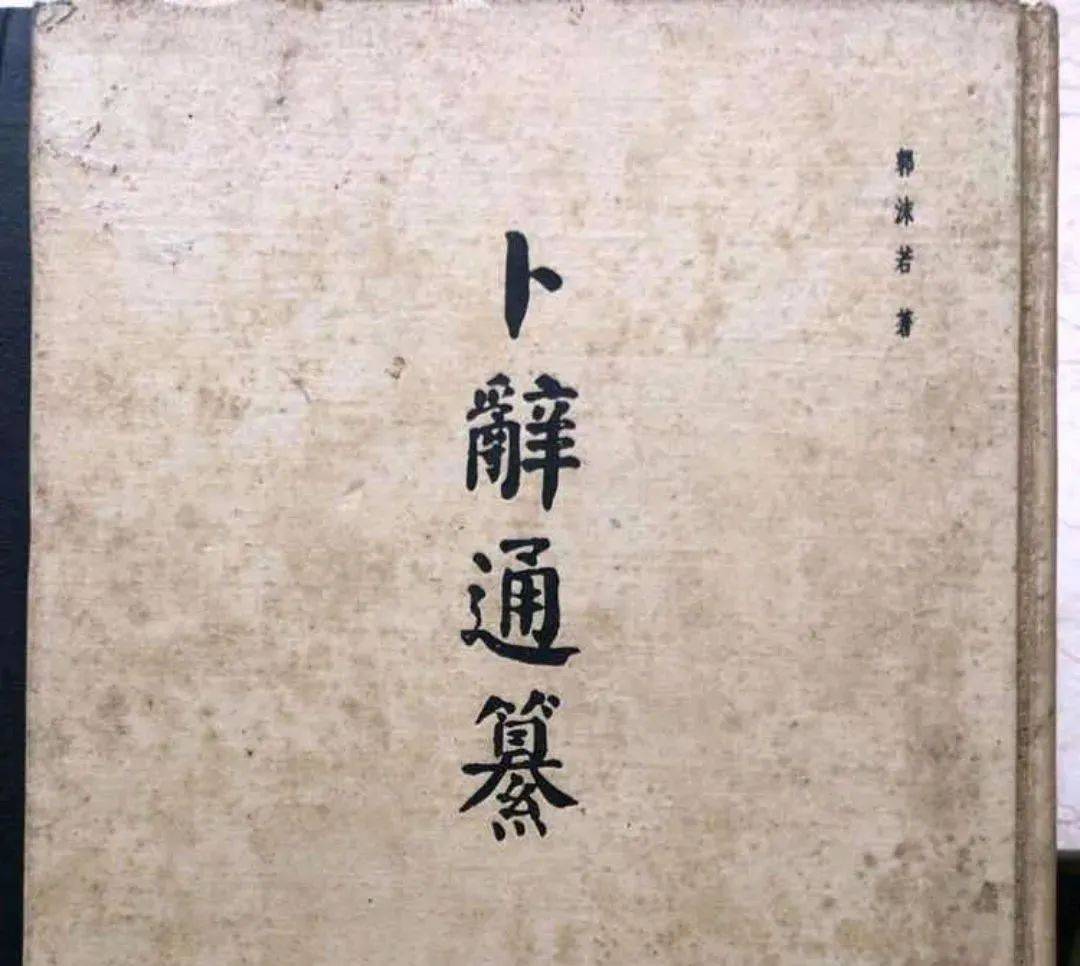 郭沫若著
卜辭通纂